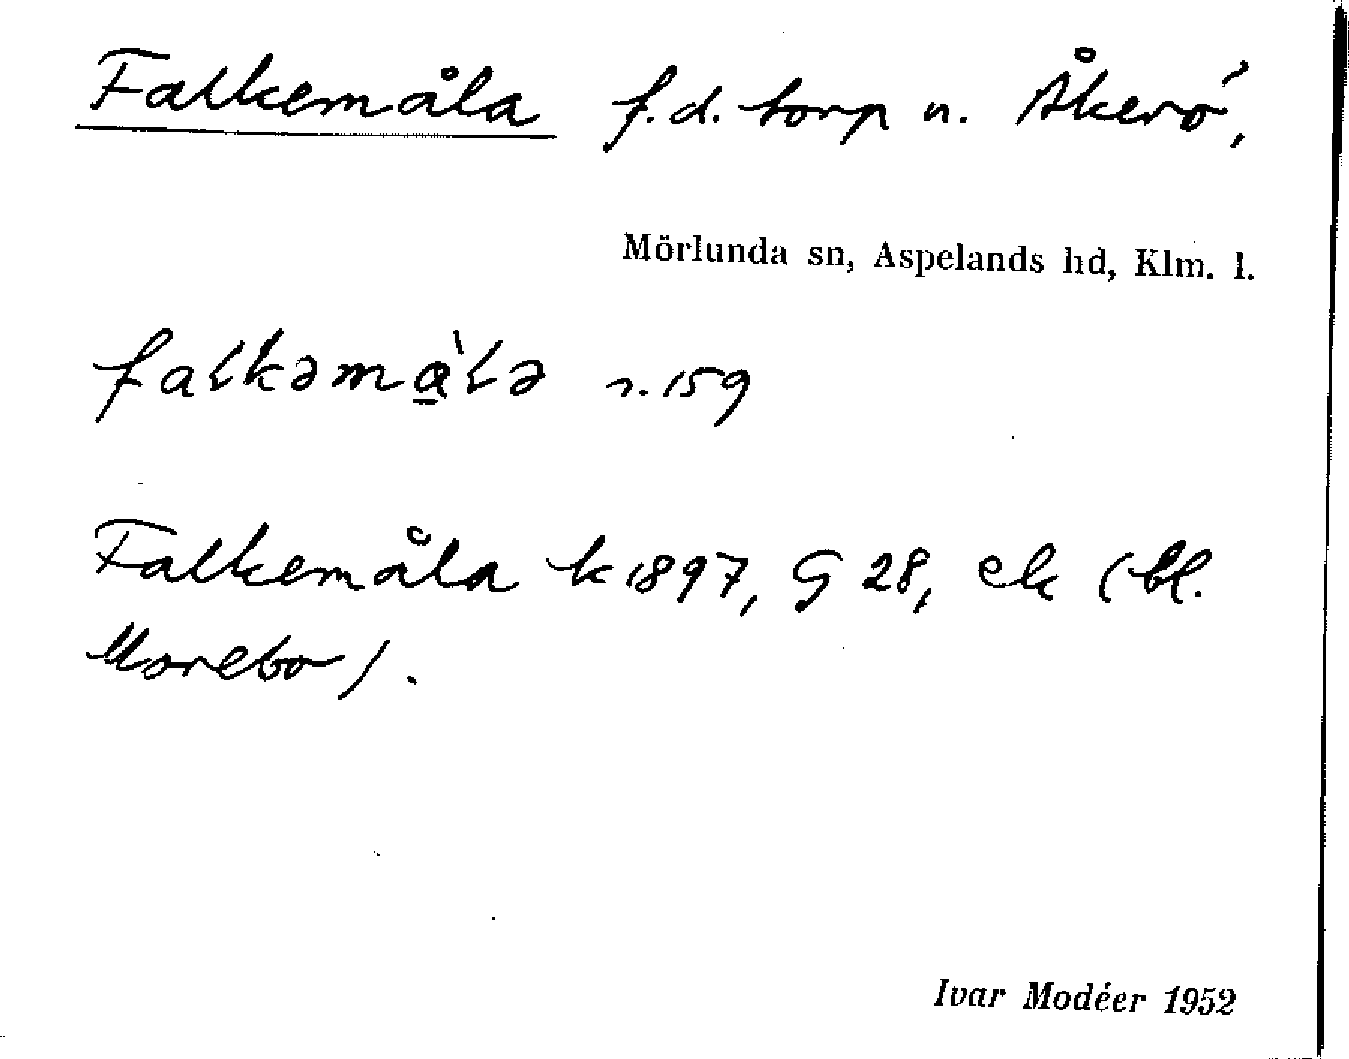 Falkemåla f.d. torp u. Åkerö,
Mörlunda sn, Aspelands hd, Klm. l.
falkəmàlə s. 159
Falkemåla k 1897, G 28, ek (bl.
Morebo).
Ivar Modéer 1952